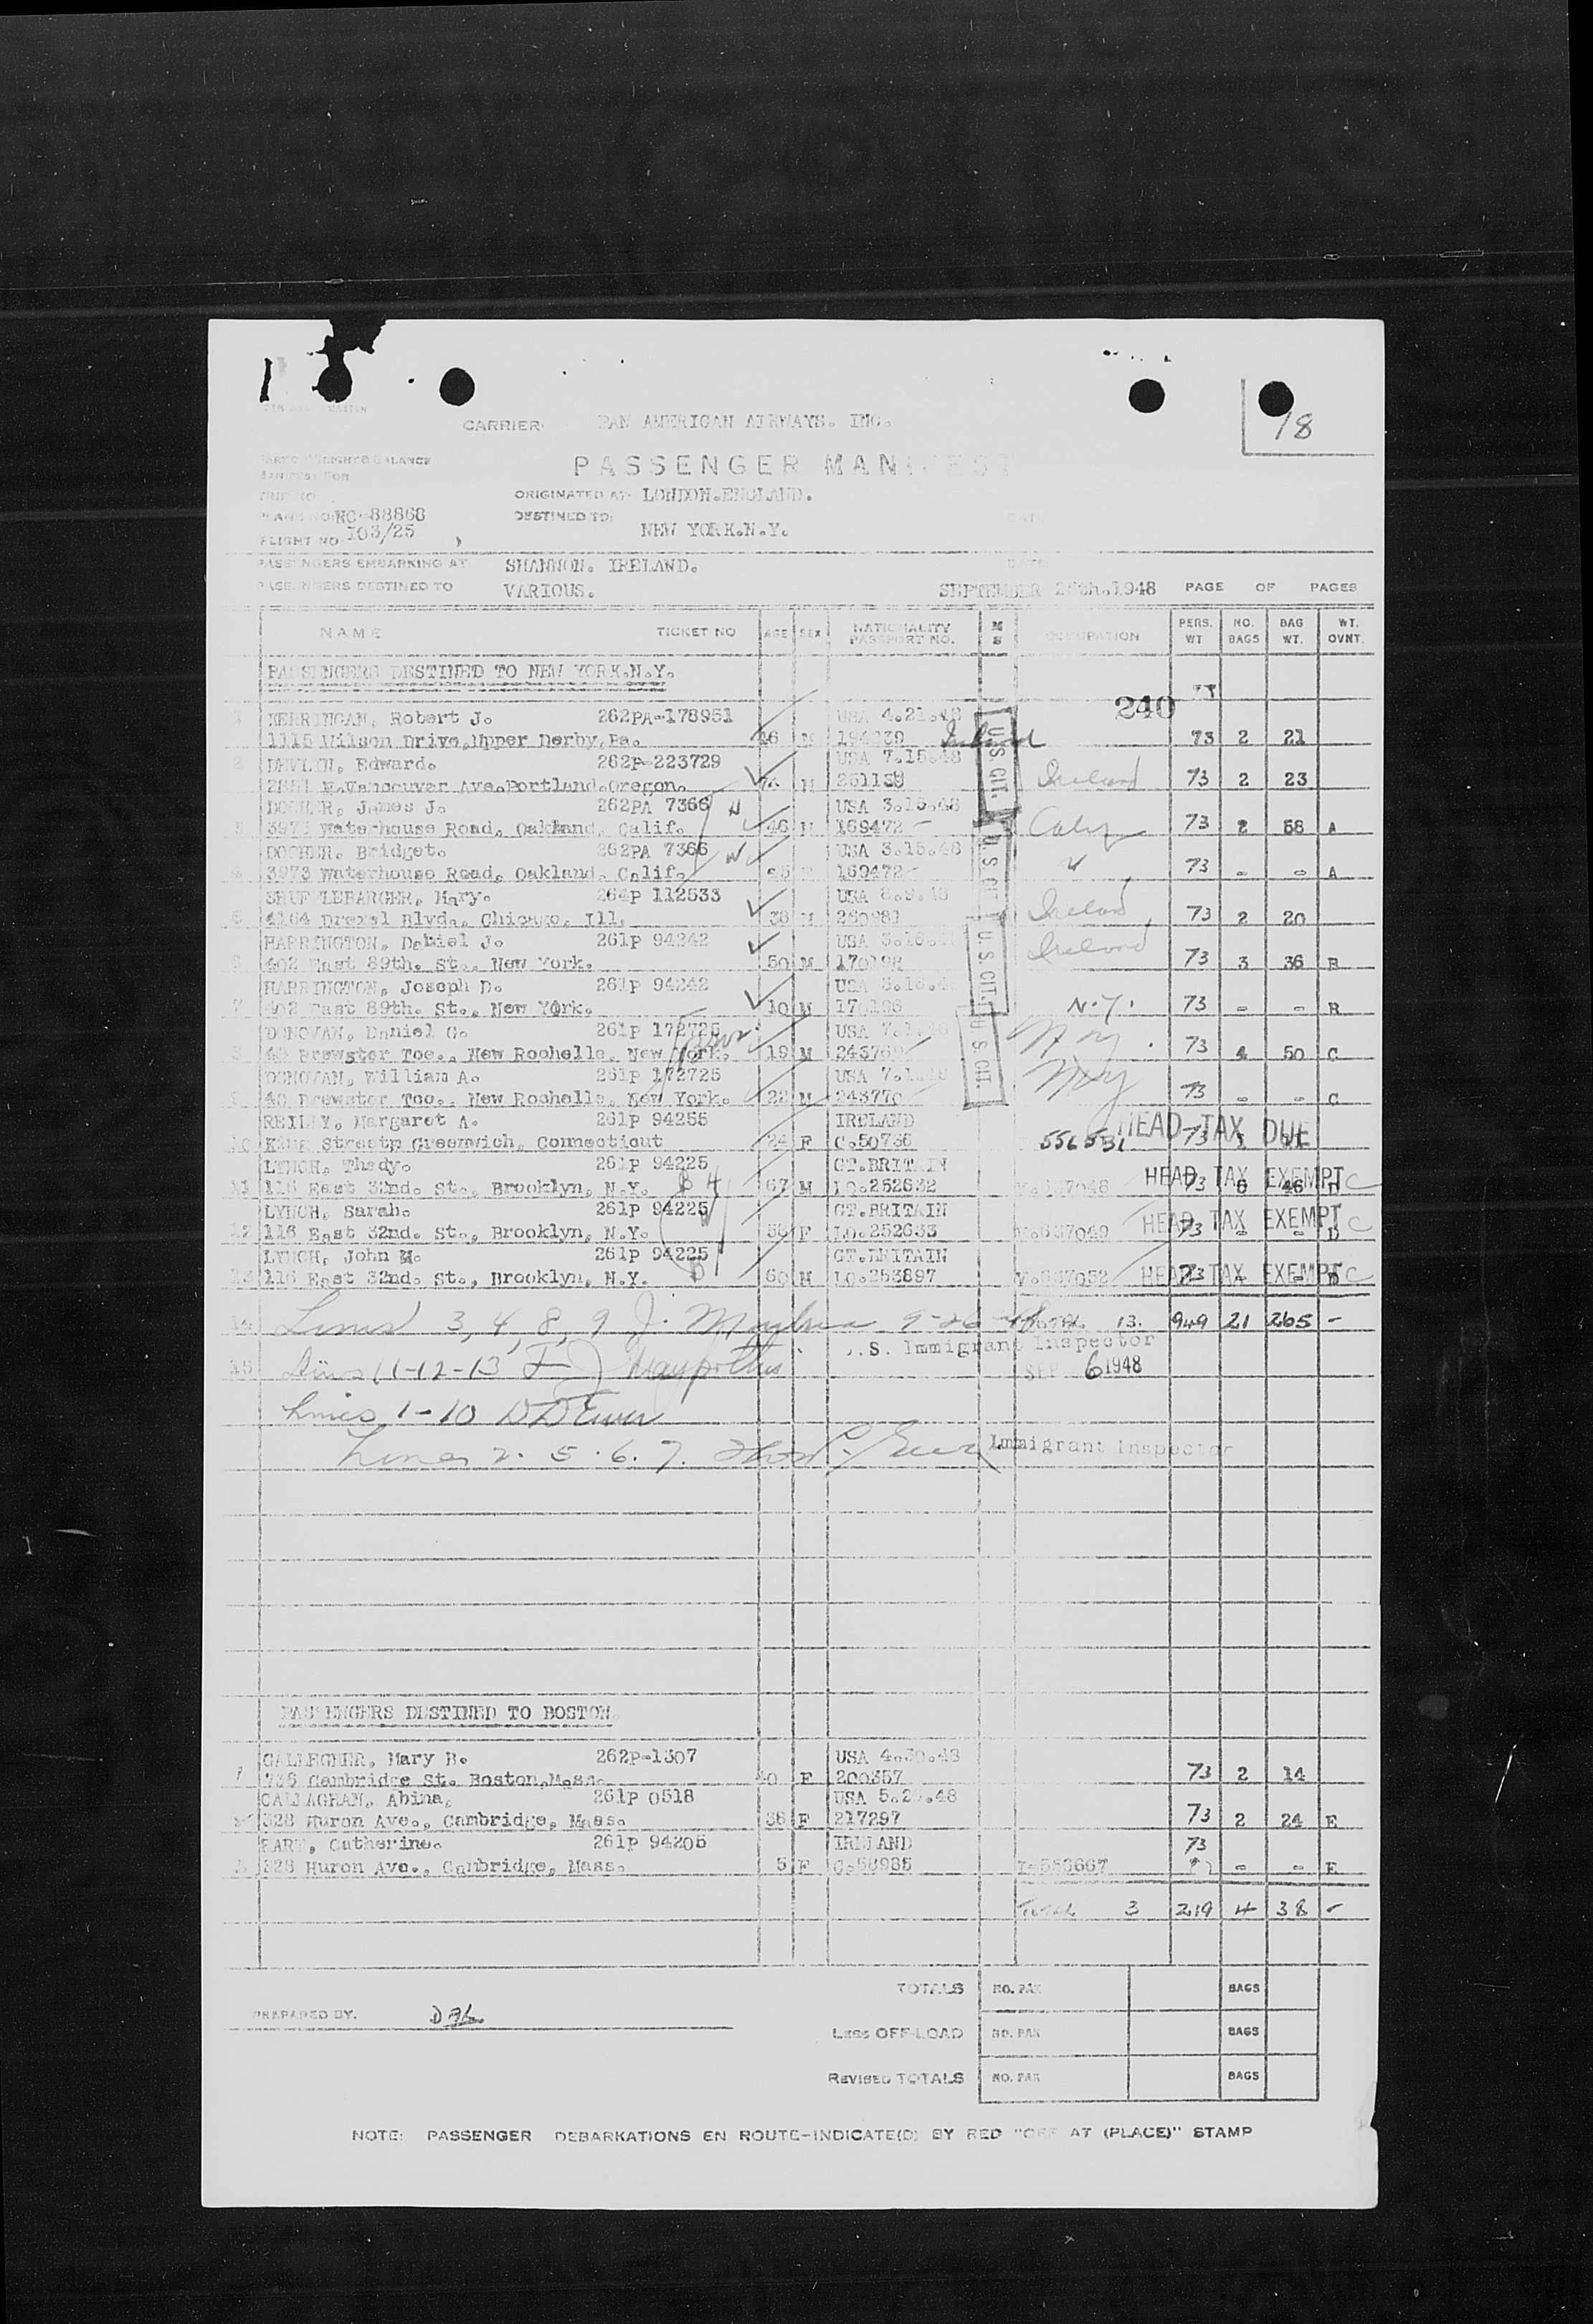 18
CARRIER: PAN AMERICAN AIRWAYS. INC.
PASSENGER MANIFEST
ORIGINATED AT: LONDON.ENGLAND.
PLANE NO. NC-88868 DESTINED TO: NEW YORK.N.Y.
FLIGHT NO 103/25
PASSENGERS EMBARKING AT SHANNON. IRELAND.
PASSENGERS DESTINED TO VARIOUS. SEPTEMBER 1948 PAGE OF PAGES
NAME TICKET NO AGE SEX NATIONALITY PASSPORT NO. M S OCCUPATION PERS. WT NO. BAGS BAG WT. WT. OVNT.
PASSENGERS DESTINED TO NEW YORK.N.Y.
240
Robert J. 262PA-178951 USA 4.21.48
1115 Wilson Drive,Upper Derby,Pa. 46 M Ireland 73 2 21
DEVLIN, Edward. 262P-223729 USA 7.15.48
N.Vancouver Ave.Portland.Oregon. M Ireland 73 2 23
James J. 262PA 7366 USA 3.15.48
3 3973 Waterhouse Road, Oakland, Calif. 46 M 169472 Calif 73 2 58 A
Bridget. 262PA 7366 USA 3.15.48
4 3973 Waterhouse Road, Oakland, Calif. 169472 73 - - A
Mary. 264P 112533 USA 8.9.48
5 4164 Drexel Blvd., Chicago, Ill. 38 260981 Ireland 73 2 20
HARRINGTON, Daniel J. 261P 94242 USA 3.16.
6 402 East 89th. St., New York. 50 M 170198 Ireland 73 3 36 B
HARRINGTON, Joseph D. 261P 94242 USA 3.16.4
7 402 East 89th. St., New York. 10 M 170196 N.Y. 73 - - B
DONOVAN, Daniel G. 261P 172725 USA 7.1.48
8 40 Brewster Tce., New Rochelle, New York. 19 M 243769 N.Y. 73 4 50 C
DONOVAN, William A. 261P 172725 USA 7.1.48
9 40 Brewster Tce., New Rochelle, New York. 22 M 243770 N.Y. 73 - - C
REILLY, Margaret A. 261P 94255 IRELAND
10 King Street, Greenwich, Connecticut 24 F C.50736 556531 HEAD TAX DUE 73
LYNCH, Thady. 261P 94225 GT.BRITAIN
11 116 East 32nd. St., Brooklyn, N.Y. 67 M LO.252632 V.637048 HEAD TAX EXEMPT 73 6 46 D
LYNCH, Sarah. 261P 94225 GT.BRITAIN
12 116 East 32nd. St., Brooklyn, N.Y. 56 F LO.252633 V.637049 HEAD TAX EXEMPT 73 - - D
LYNCH, John M. 261P 94225 GT.BRITAIN
13 116 East 32nd. St., Brooklyn, N.Y. 60 M LO.253897 V.637052 HEAD TAX EXEMPT 73 - - D
U.S. CIT.
U.S. CIT.
U.S. CIT.
U.S. CIT.
14 Lines 3, 4, 8, 9 J. 9-26-48 Total 13. 949 21 265 -
U.S. Immigrant Inspector
15 Lines 11-12-13 SEP 6 1948
Lines 1-10
Lines 2. 5. 6. 7. Immigrant Inspector
PASSENGERS DESTINED TO BOSTON.
GALLEGHER, Mary B. 262P-1307 USA 4.30.48
1 736 Cambridge St. Boston,Mass. 40 F 200357 73 2 14
CALLAGHAN, Abina, 261P 0518 USA 5.2 .48
2 328 Huron Ave., Cambridge, Mass. 38 F 217297 73 2 24 E
Catherine. 261P 94205 IRELAND 73
3 328 Huron Ave., Cambridge, Mass. 5 F C.58985 - - E
Total 3 219 4 38 -
TOTALS NO. PAX BAGS
PREPARED BY.
Less OFF-LOAD NO. PAX BAGS
REVISED TOTALS NO. PAX BAGS
NOTE: PASSENGER DEBARKATIONS EN ROUTE-INDICATE(D) BY RED "OFF AT (PLACE)" STAMP